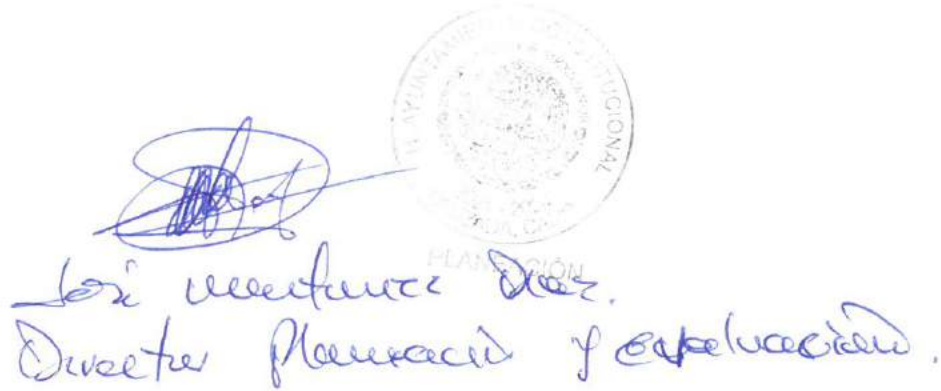 H. AYUNTAMIENTO CONSTITUCIONAL
PLANEACIÓN
José Montanez Diaz.
Director Planeación y evaluación.